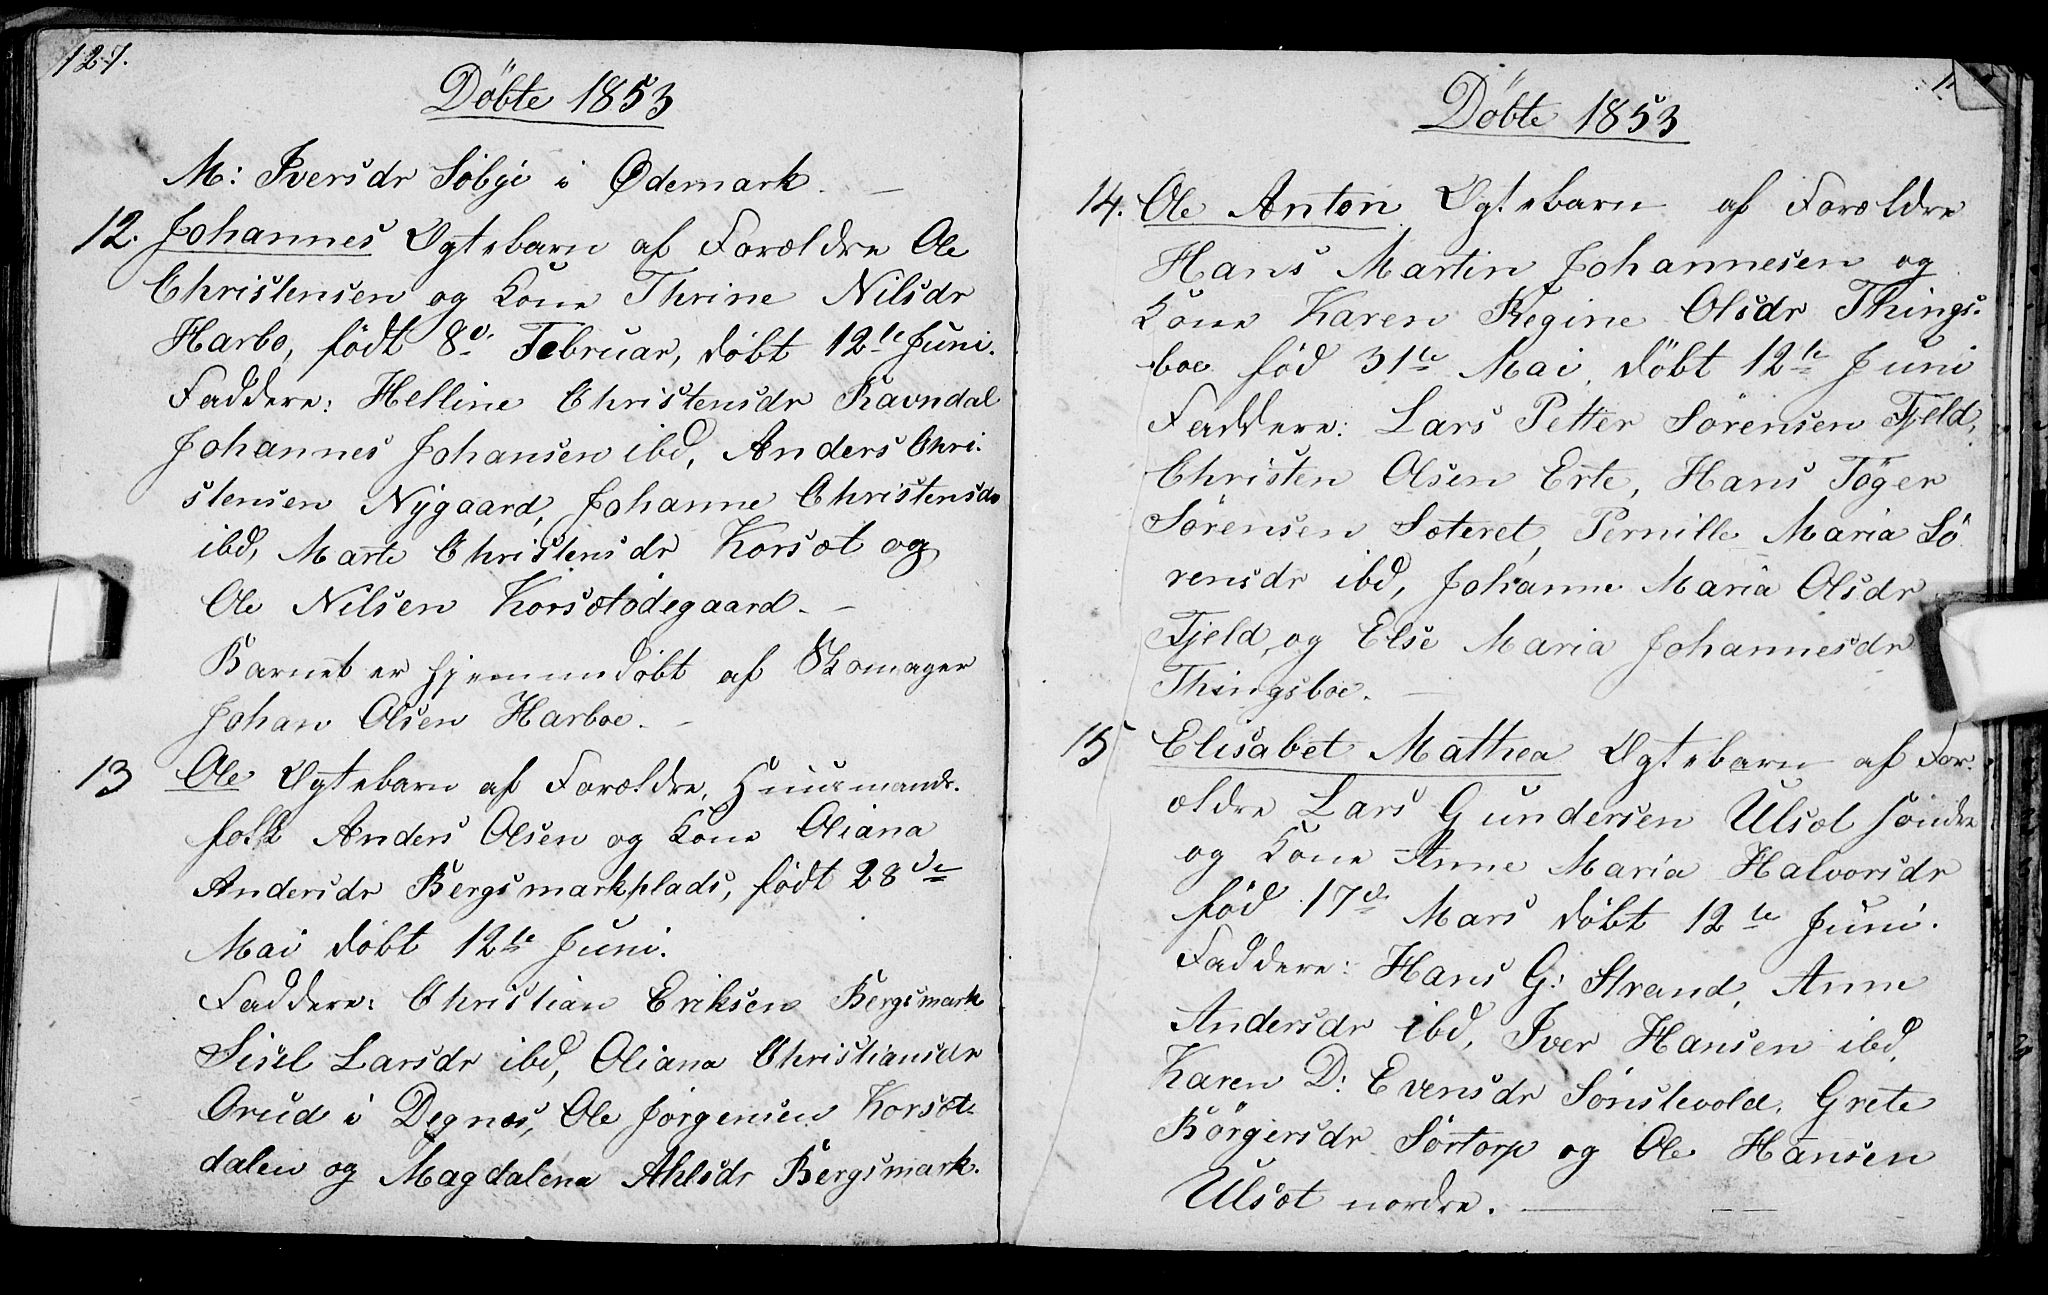 127.
Döbte 1853
M: Iversdr Söbye i Ödemark. —
12. Johannes Ægtebarn af Forældre Ole
Christensen og Kone Thrine Nilsdr
Harbo, födt 8de Februar, döbt 12te Juni.
Faddere: Helline Christensdr Ravndal
Johannes Johansen ibd, Anders Chri-
stensen Nygaard, Johanne Christensdr
ibd, Marte Christensdr Korsæt og
Ole Nilsen Korsætödegaard. —
Barnet er hjemmedöbt af Skomager
Johan Olsen Harboe. —
13 Ole Ægtebarn af Forældre, Huusmands-
folk Anders Olsen og Kone Oliana
Andersdr Bergsmarkplads, födt 28de
Mai döbt 12te Juni.
Faddere: Christian Eriksen Bergsmark
Sisel Larsdr ibd, Oliana Christiansdr
Grud i Degnes, Ole Jörgensen Korsæt-
dalen og Magdalena Ahlsdr Bergsmark.
Döbte 1853
14. Ole Anton Ægtebarn af Forældre
Hans Martin Johannesen og
Kone Karen Regine Olsdr Things-
boe föd 31te Mai, döbt 12te Juni
Faddere: Lars Petter Sörensen Fjeld,
Christen Olsen Erte, Hans Töger
Sörensen Sæteret, Pernille Maria Sö
rensdr ibd, Johanne Maria Olsdr
Fjeld, og Else Maria Johannesdr
Thingsboe. —
15 Elisabet Mathea Ægtebarn af For-
ældre Lars Gundersen Ulsæt söndre
og Kone Anne Maria Halvorsdr
föd 17de Mars döbt 12te Juni.
Faddere: Hans G: Strand, Anne
Andersdr ibd, Iver Hansen ibd,
Karen D: Evensdr Sönstevold, Grete
Börgersdr Sörtorp og Ole Hansen
Ulsæt nordre. —